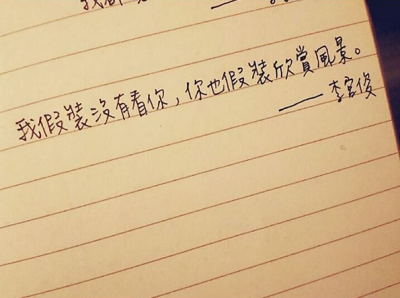 我假裝沒有看你，你也假裝欣賞風景。
——李宮俊